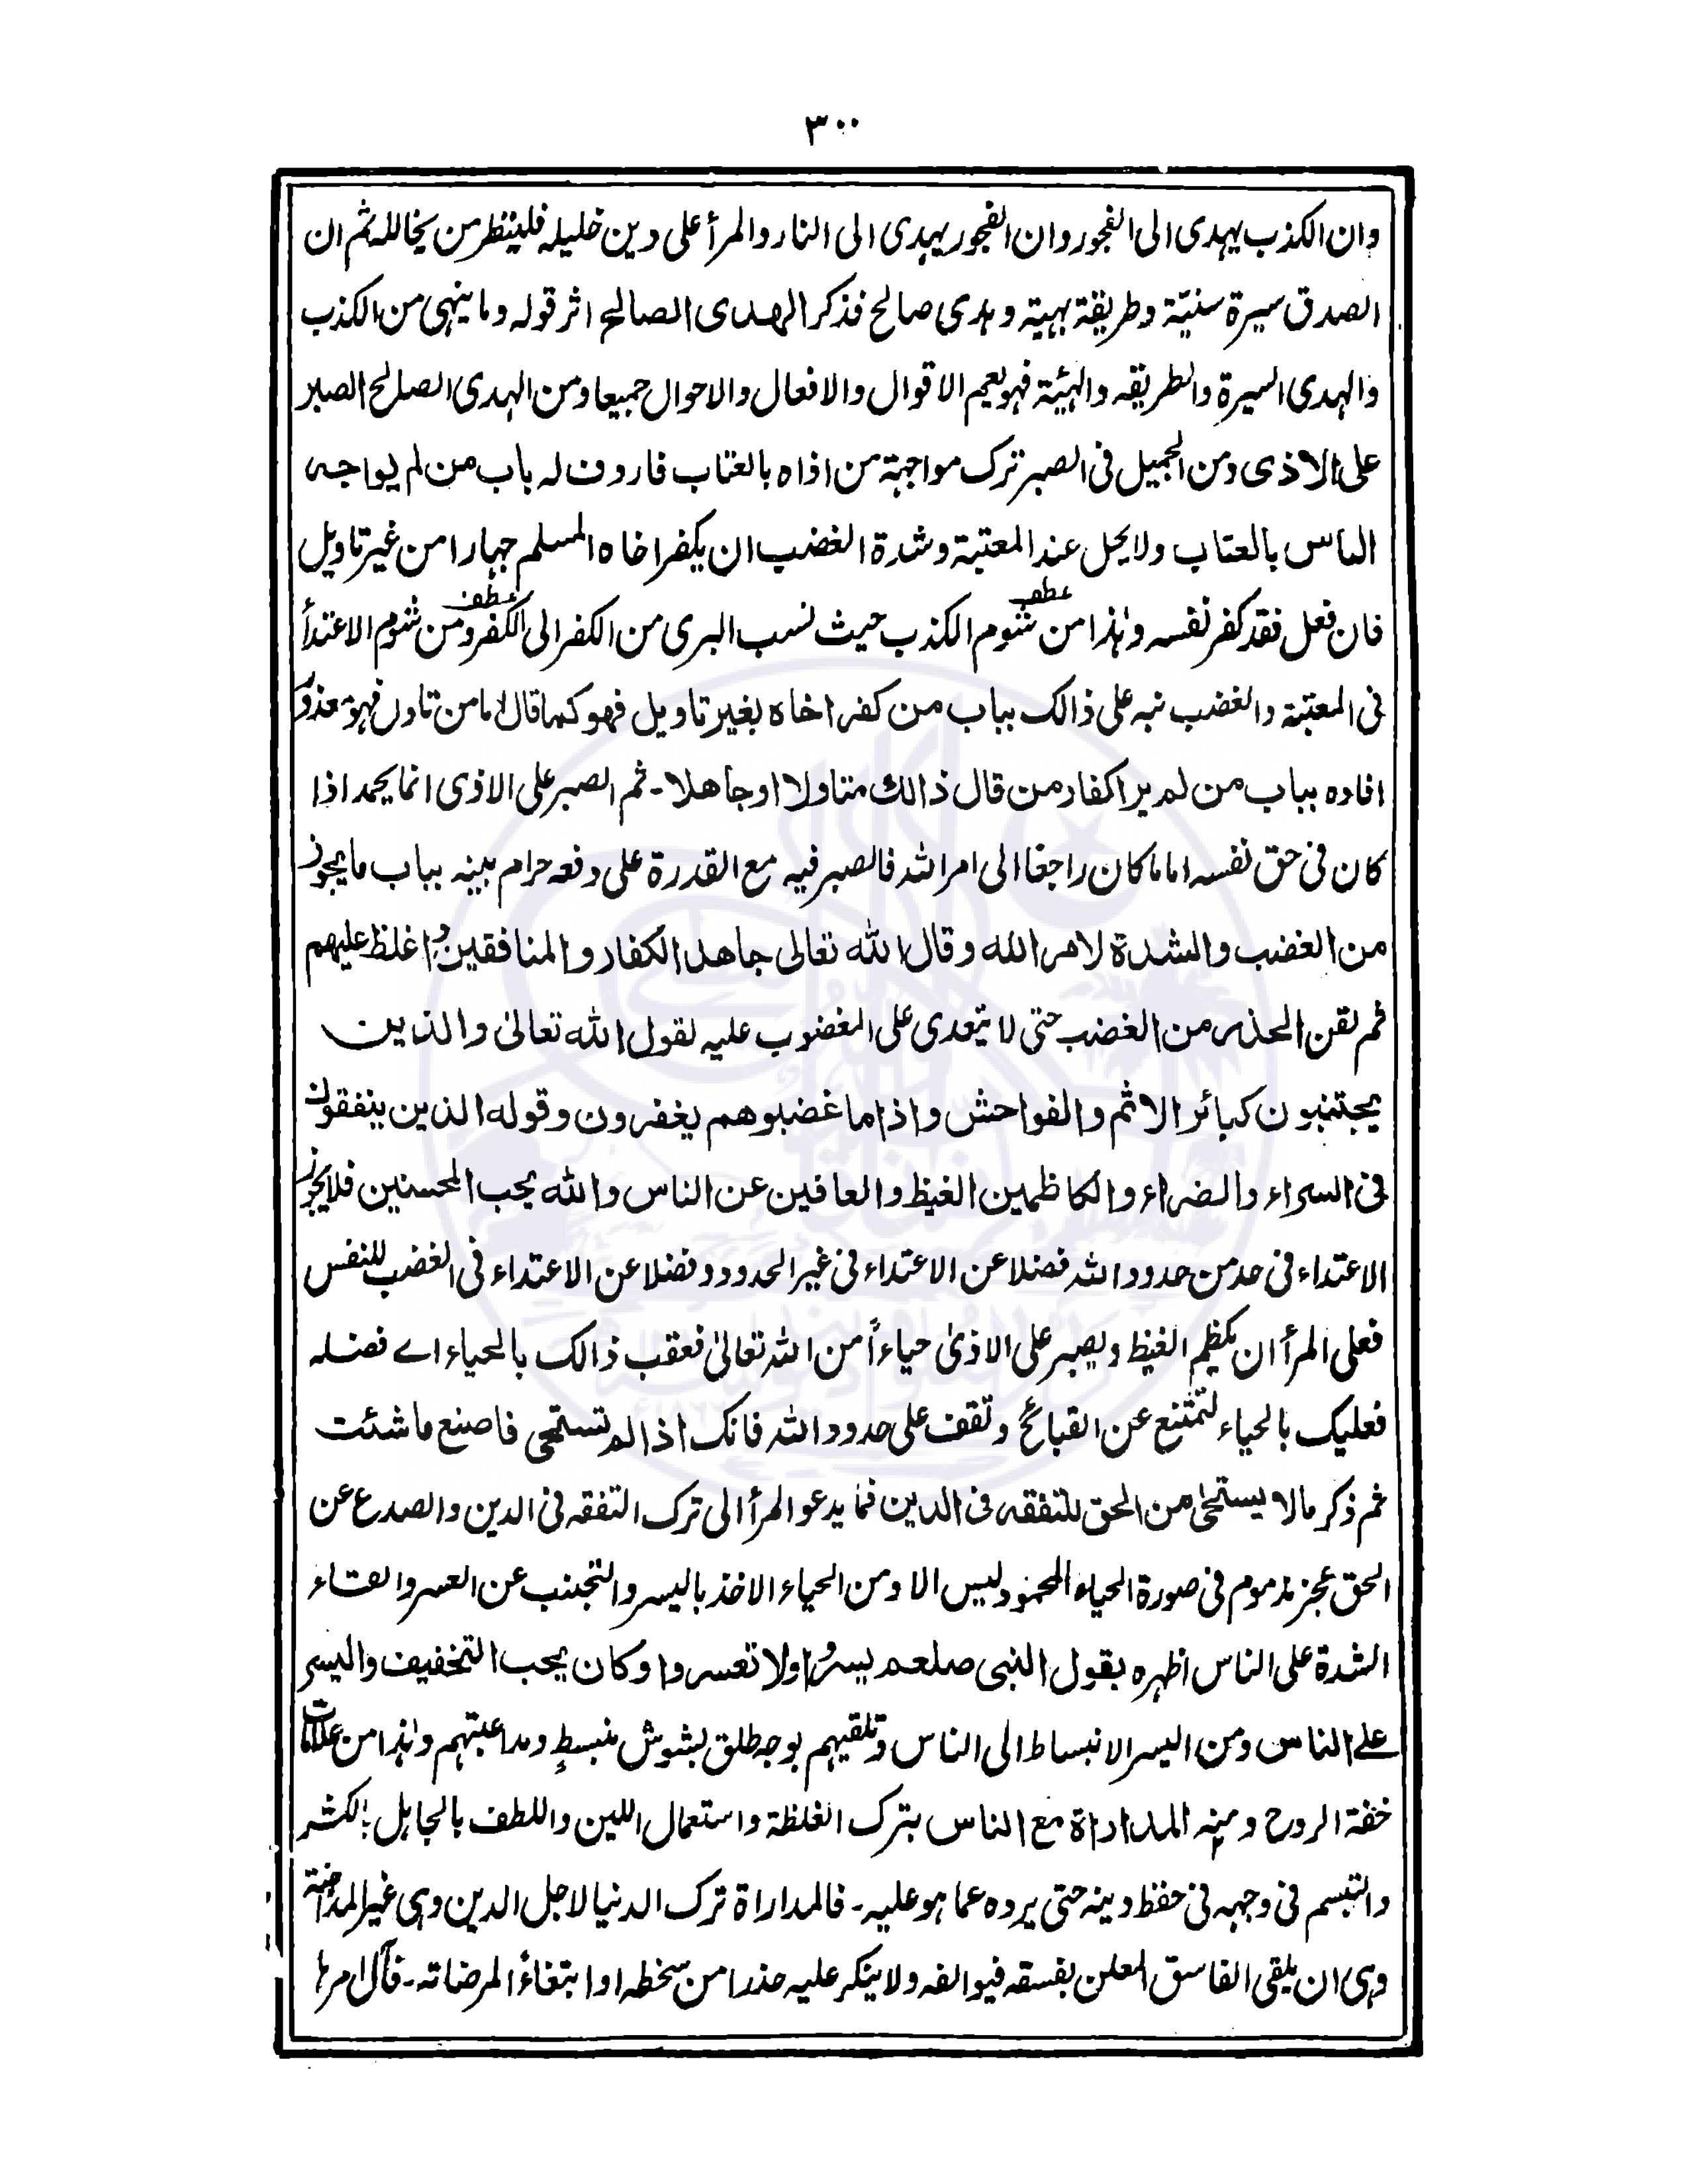 ٣٠٠
وان الكذب يهدى الى الفجور وان الفجور يهدى الى النار والمرأ على دين خليله فلينظر من يخالله ثم ان
الصدق سيرة سنيّة وطريقة بهية وهدى صالح فذكر الهدى الصالح اثر قوله وما ينهى من الكذب
والهدى السيرة والطريقه والهيئة فهو يعم الاقوال والافعال والاحوال جميعا ومن الهدى الصالح الصبر
على الاذى ومن الجميل فى الصبر ترك مواجهة من اذاه بالعتاب فاردف له باب من لم يواجه
الناس بالعتاب ولا يحل عند المعتبة وشدة الغضب ان يكفر اخاه المسلم جهارا من غير تاويل
فان فعل فقد كفر نفسه وهذا من شوم الكذب حيث نسب البرى من الكفر الى الكفر ومن شوم الاعتدأ
عطف عطف
فى المعتبة والغضب نبه على ذالك بباب من كفر اخاه بغير تاويل فهو كما قال اما من تاول فهو معذور
افاده بباب من لم ير اكفار من قال ذالك متاولا اوجاهلا - ثم الصبر على الاذى انما يحمد اذا
كان فى حق نفسه اما ما كان راجعا الى امر الله فالصبر فيه مع القدرة على دفعه حرام بينه بباب ما يجوز
من الغضب والشدة لامر الله وقال الله تعالى جاهد الكفار والمنافقين واغلظ عليهم
ثم لقن الحذر من الغضب حتى لا يتعدى على المغضوب عليه لقول الله تعالىٰ والذين
يجتنبون كبائر الاثم والفواحش واذا ما غضبوهم يغفرون وقوله الذين ينفقون
فى السراء والضراء والكاظمين الغيظ والعافين عن الناس والله يحب المحسنين فلا يجوز
الاعتداء فى حد من حدود الله فضلا عن الاعتداء فى غير الحدود وفضلا عن الاعتداء فى الغضب للنفس
فعلى المرأ ان يكظم الغيظ ويصبر على الاذىٰ حياءاً من الله تعالىٰ فعقب ذالك بالحياء اے فضله
فعليك بالحياء لتمتنع عن القبائح وتقف على حدود الله فانك اذا لم تستحى فاصنع ما شئت
ثم ذكر مالا يستحىٰ من الحق للتفقه فى الدين فما يدعو المرأ الى ترك التفقه فى الدين والصدع عن
الحق عجز مذموم فى صورة الحياء المحمود ليس الا ومن الحياء الاخذ باليسر والتجنب عن العسر والقاء
الشدة على الناس اظهره بقول النبى صلعم يسروا ولا تعسروا وكان يحب التخفيف واليسر
علے الناس ومن اليسر الانبساط الى الناس وتلقيهم بوجه طلق بشوش منبسطٍ ومداعبتهم وهذا من علامات
خفة الروح ومنه المداراة مع الناس بترك الغلظة واستعمال اللين واللطف بالجاهل بالكشر
والتبسم فى وجهه فى حفظ دينه حتى يرده عما هو عليه - فالمداراة ترك الدنيا لاجل الدين وهى غير المداهنة
وهى ان يلقى الفاسق المعلن بفسقه فيوالفه ولا ينكر عليه حذرا من سخطه او ابتغاءً لمرضاته - فآل امرها